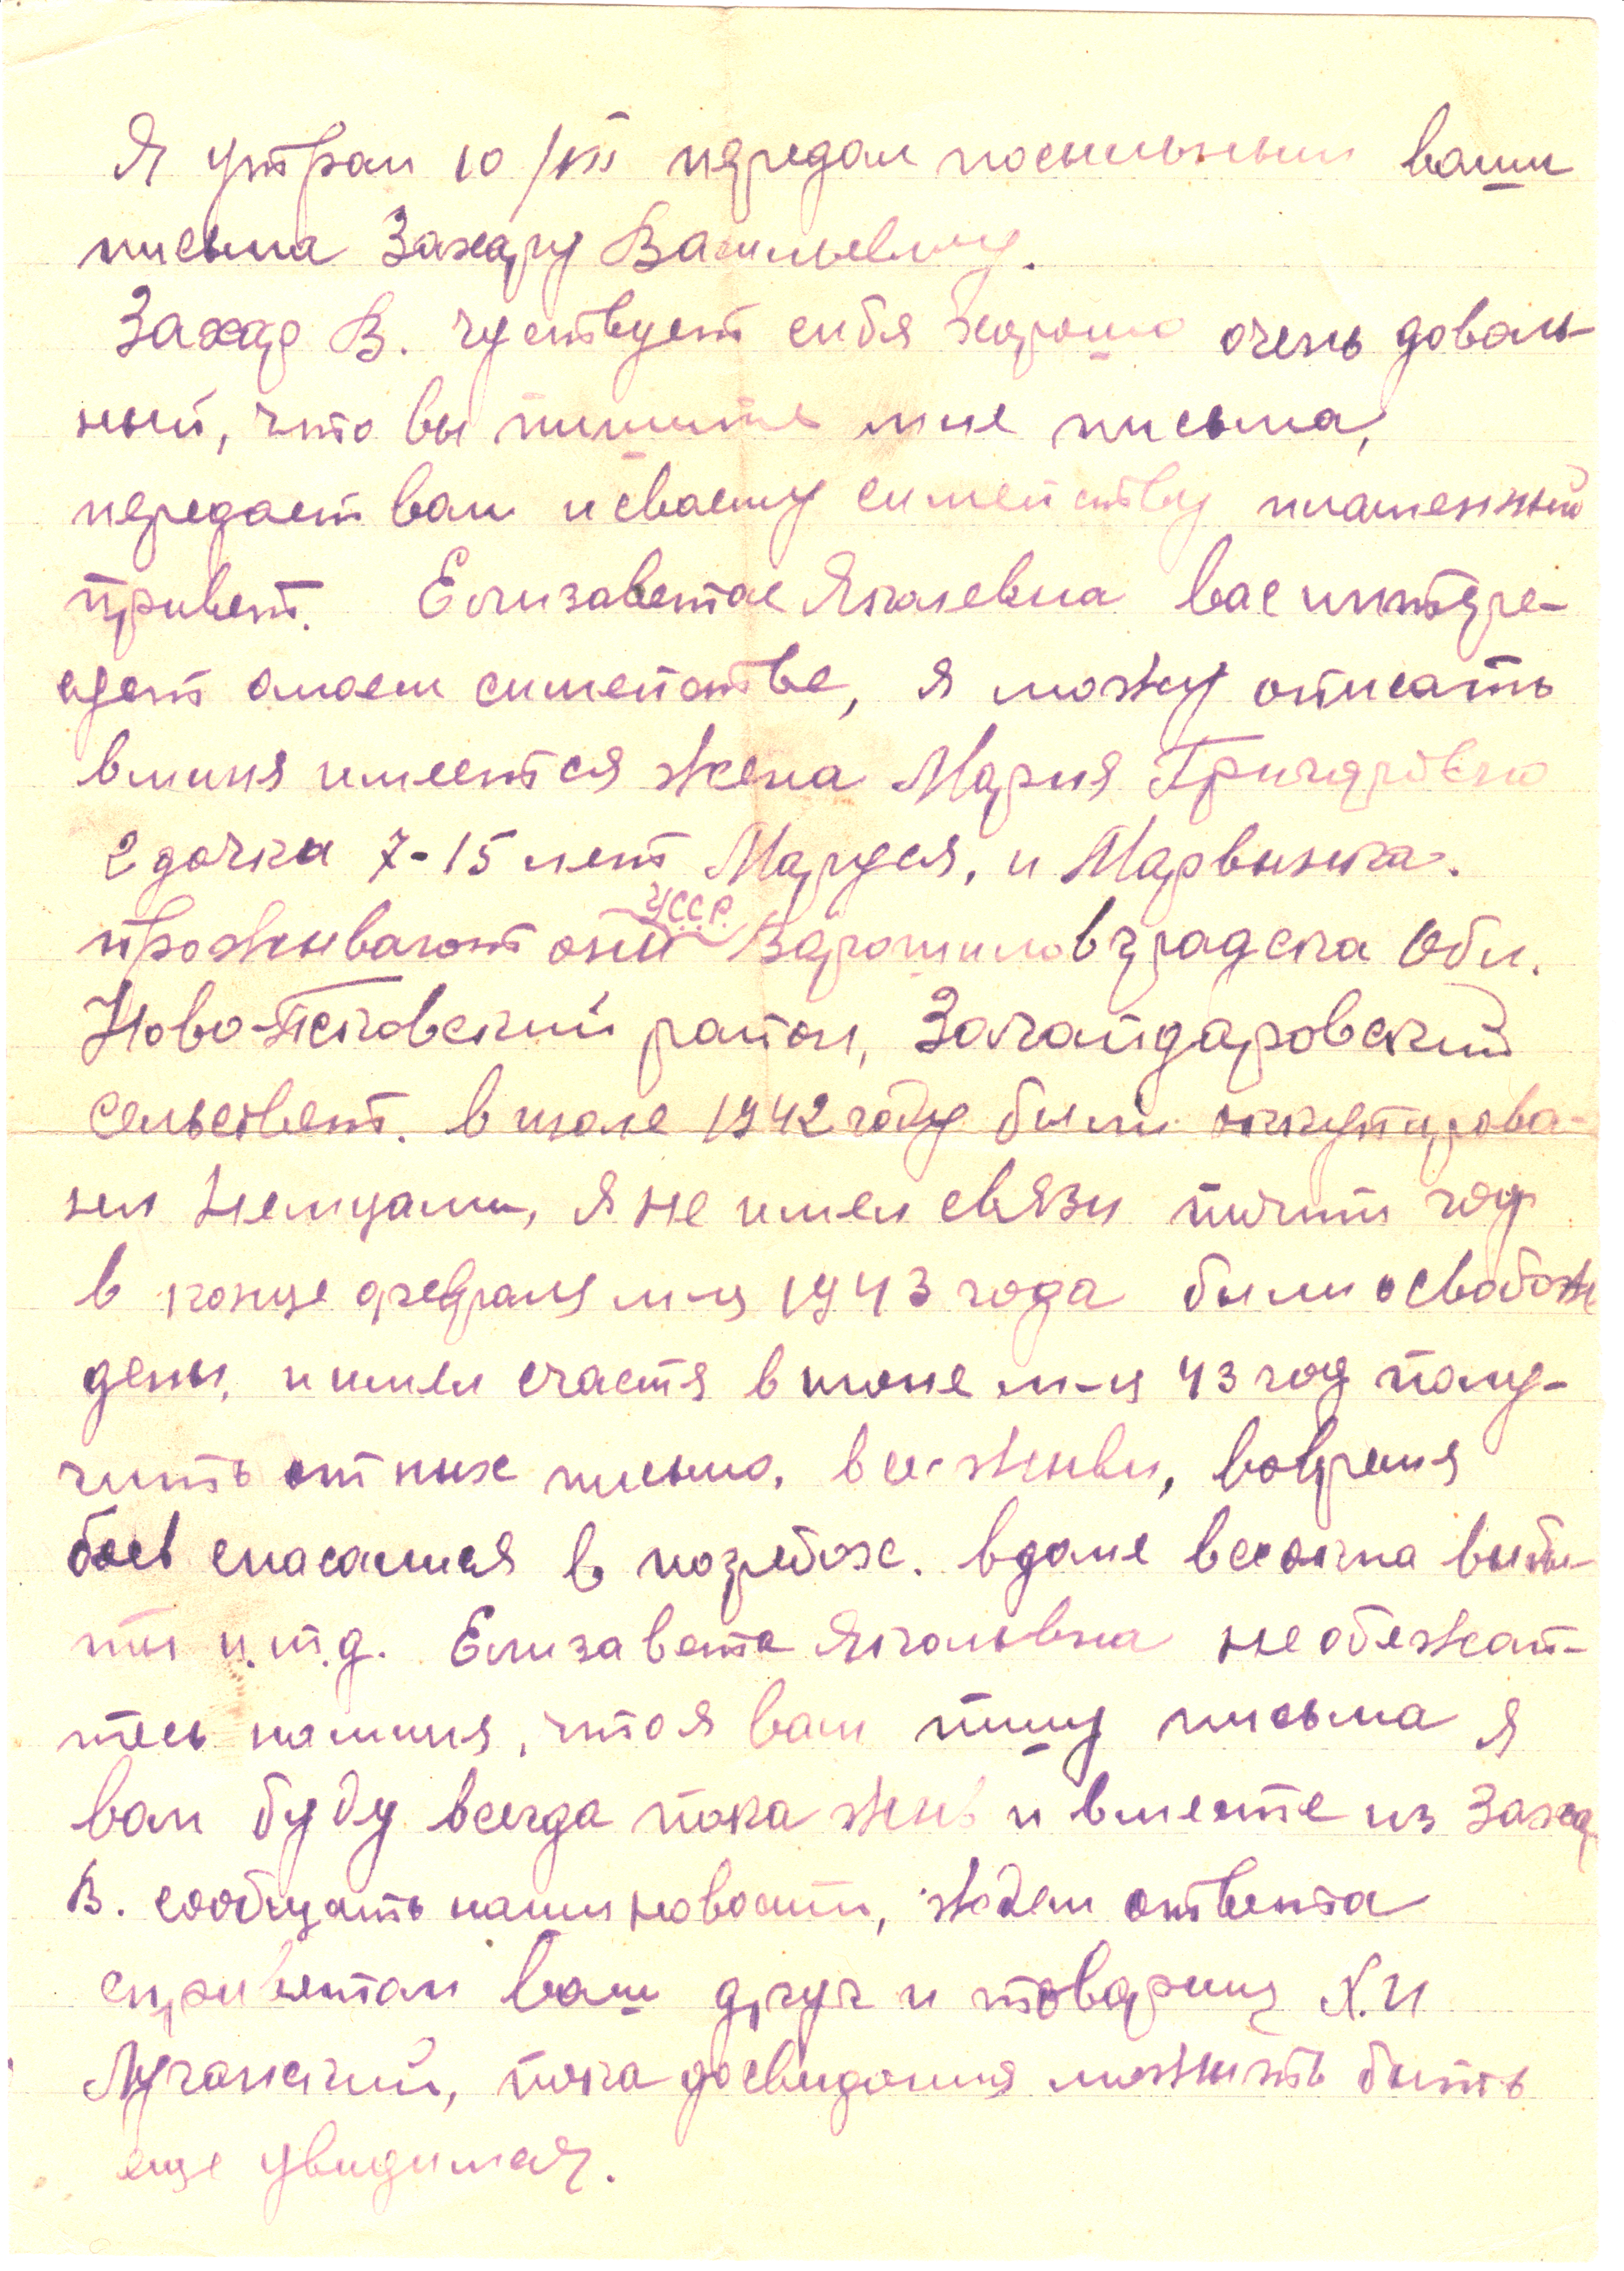 Я утром 10/VII передал посыльным ваши
письма Захару Васильевичу.
Захар В. чуствует сибя харошо очень доволь-
ный, что вы пишите мне письма,
передает вам и сваему симейству пламенный
привет. Елизавета Яковлевна вас интере-
сует о моем симействе, я можу описать
в миня имеется жена Мария Григоровна
2 дочки 7-15 лет Маруся, и Марвынка.
проживают они УССР Ворошиловградска Обл.
Ново-Псковский район, Закайдаровский
сельсвет. в июле 1942 году были оккупирова-
ны Немцами, я не имел связи почти год
в конце февраля м-ця 1943 года были освобож
дены, и имел счастя в июне м-ця 43 год полу-
чить от них письмо, все живы, вовремя
боев спасалися в погребах. в доме все окна выби-
ты и.т.д. Елизавета Яковлевна не обежай-
тесь на миня, что я вам пишу письма я
вам буду всегда пока жив и вместе из Захар
В. сообщать наши новости, ждем ответа
с приветом ваш друг и товарищ Х.И
Луганский, пока досвидания можить быть
еще увидимся.